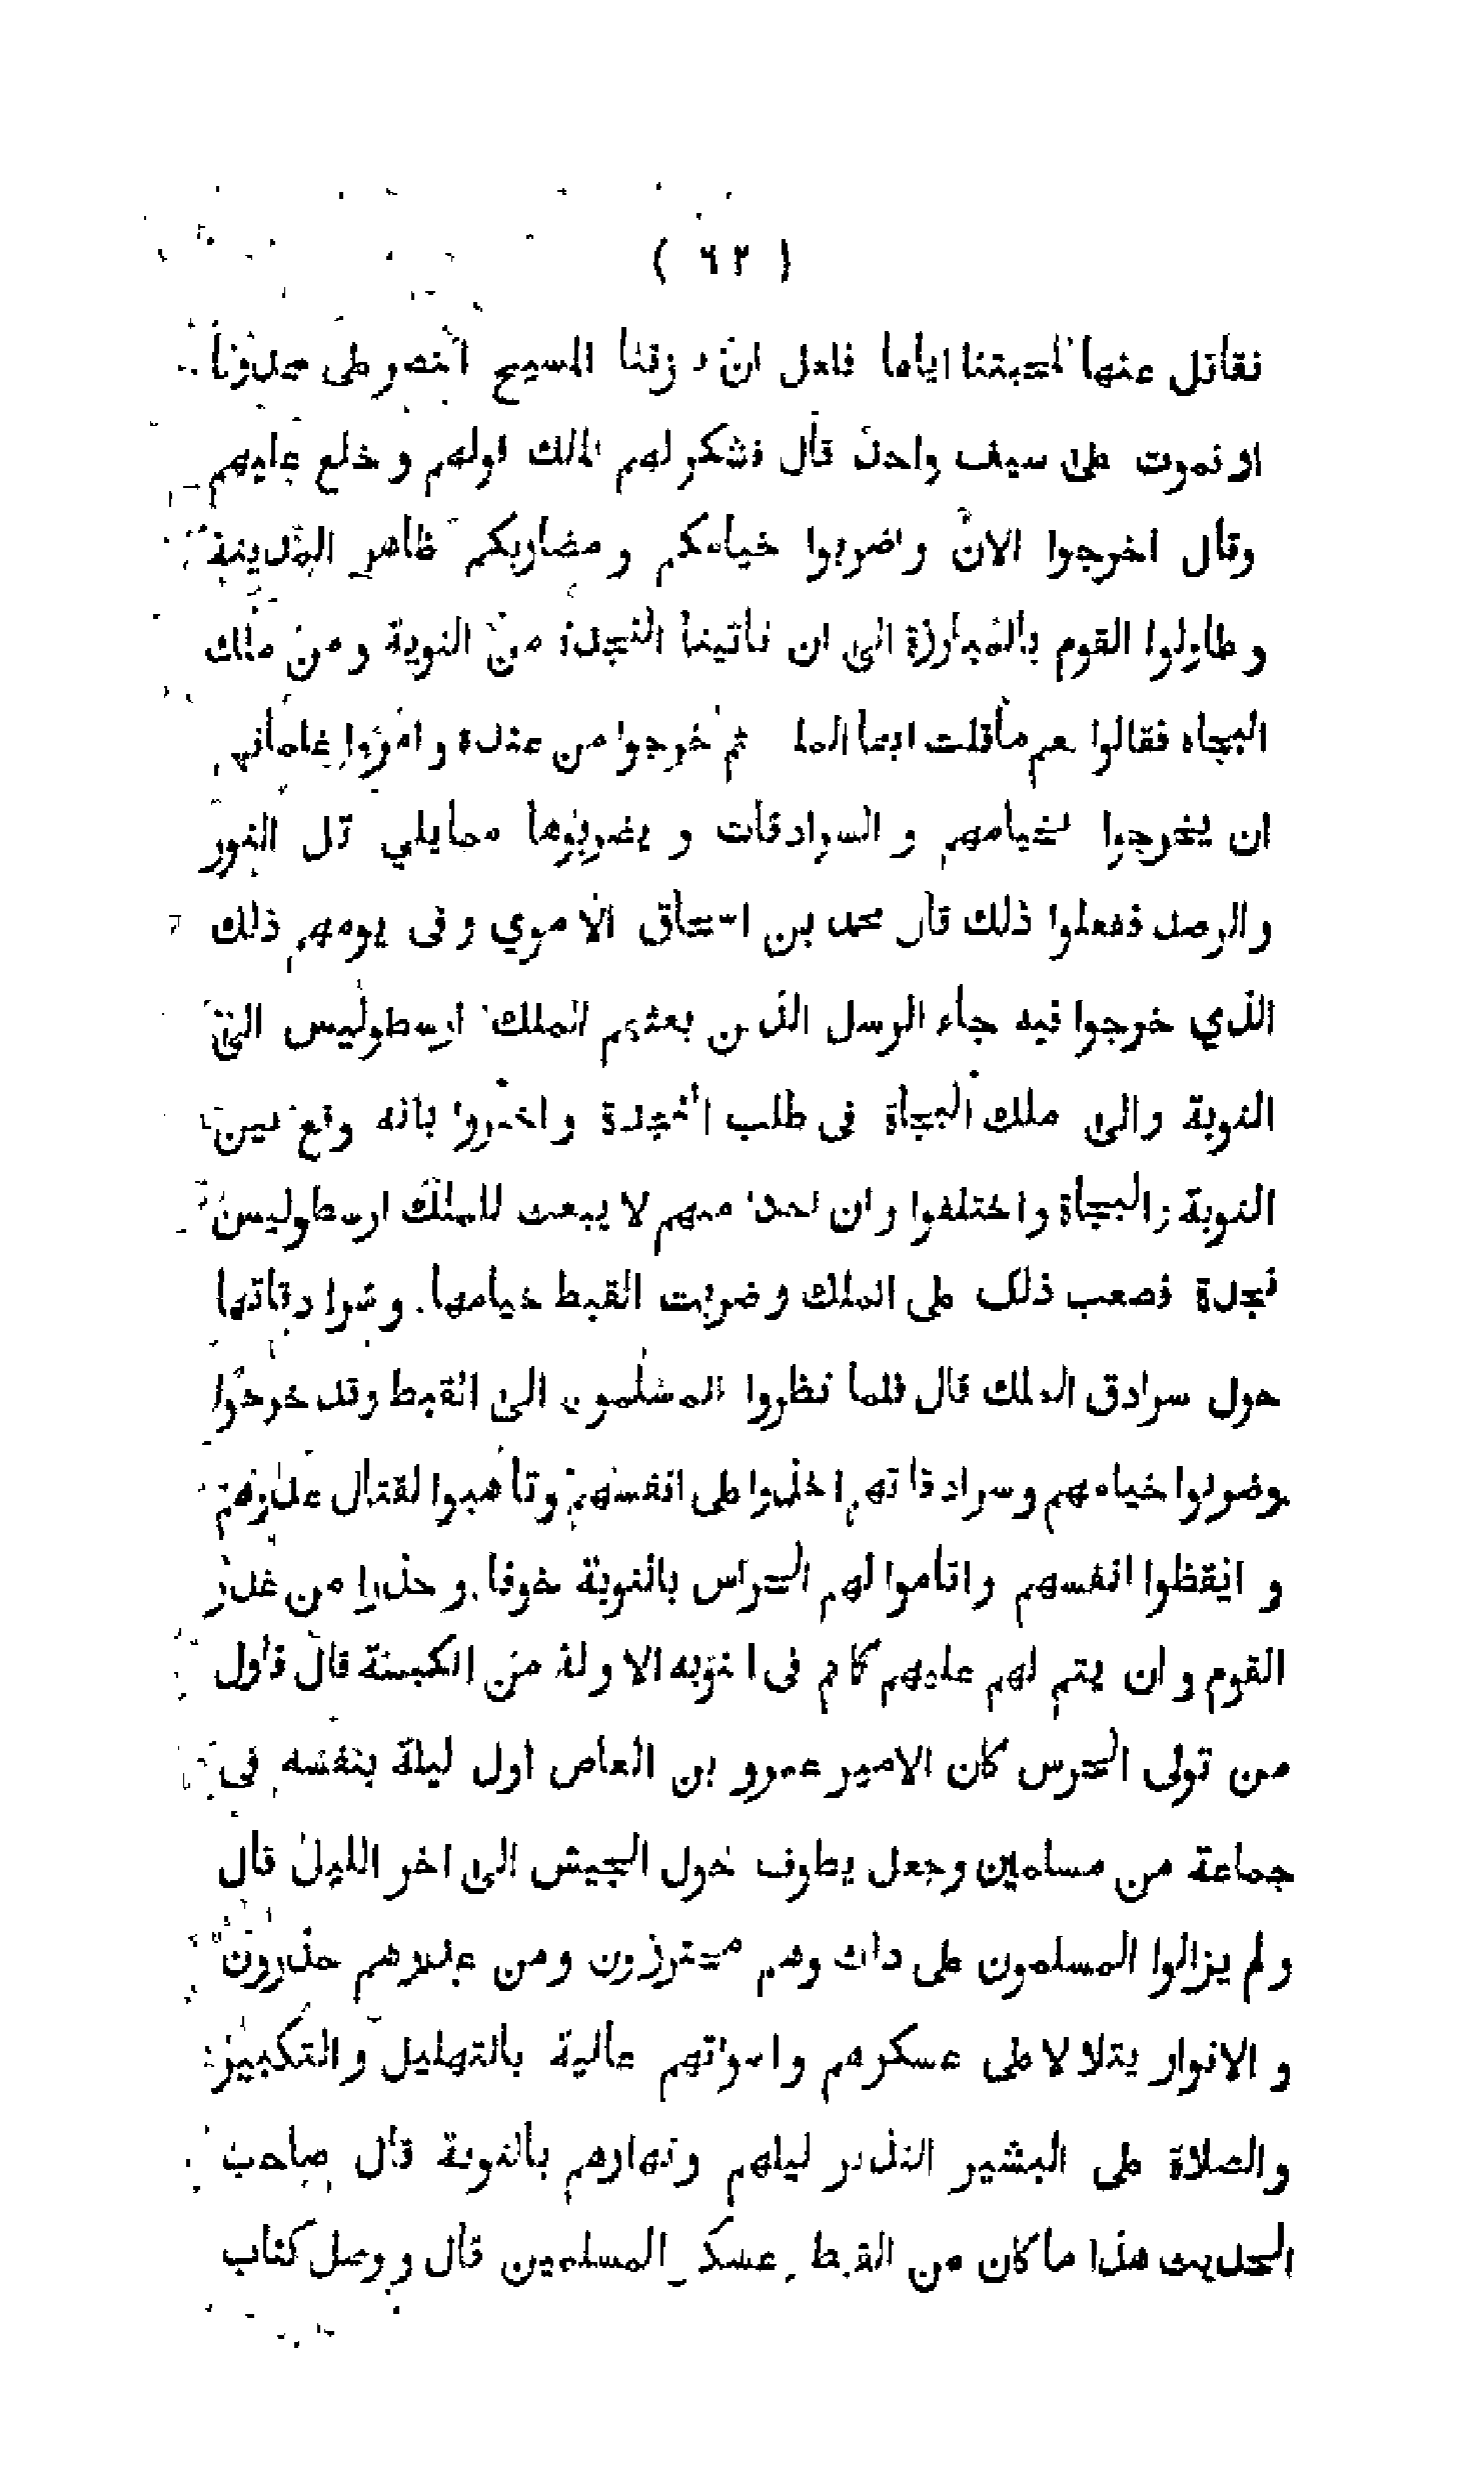 ( ٦٢ )
نقاتل عنها لمحبتنا اياها فلعل ان يرزقنا المسيح النصر على عدونا
او نموت على سيف واحد قال فشكر لهم الملك قولهم و خلع عليهم
وقال اخرجوا الان واضربوا خيامكم ومضاربكم ظاهر المدينة
وطاولوا القوم بالمبارزة الى ان تاتينا النجدة من النوبة ومن ملك
البجاه فقالوا نعم ماقلت ايها الملك ثم خرجوا من عنده وامروا غلمانهم
ان يخرجوا خيامهم و السرادقات و يضربوها ممايلي تل النور
والرصد ففعلوا ذلك قال محمد بن اسحاق الاموي وفى يومهم ذلك
الذي خرجوا فيه جاء الرسل الذين بعثهم الملك ارسطوليس الى
النوبة والى ملك البجاة فى طلب النجدة واخبروا بانه وقع بين
النوبة والبجاة واختلفوا وان احدا منهم لا يبعث للملك ارسطوليس
نجدة فصعب ذلك على الملك وضربت القبط خيامها وشرادقاتها
حول سرادق الملك قال فلما نظروا المسلمون الى القبط وقد خرجوا
وضربوا خيامهم وسرادقاتهم اخذوا على انفسهم وتأهبوا لقتال عدوهم
و ايقظوا انفسهم واقاموا لهم الحراس بالنوبة خوفا وحذرا من غدر
القوم وان يتم لهم عليهم كما تم فى النوبه الاولة من الكبسة قال فأول
من تولى الحرس كان الامير عمرو بن العاص اول ليلة بنفسه فى
جماعة من مسلمين وجعل يطوف حول الجيش الى اخر الليل قال
ولم يزالوا المسلمون على ذلك وهم محترزون ومن عدوهم حذرون
و الانوار يتلالا على عسكرهم واصواتهم عالية بالتهليل والتكبير
والصلاة على البشير النذير ليلهم ونهارهم بالنوبة قال صاحب
الحديث هذا ما كان من القبط عسكر المسلمين قال و وصل كتاب